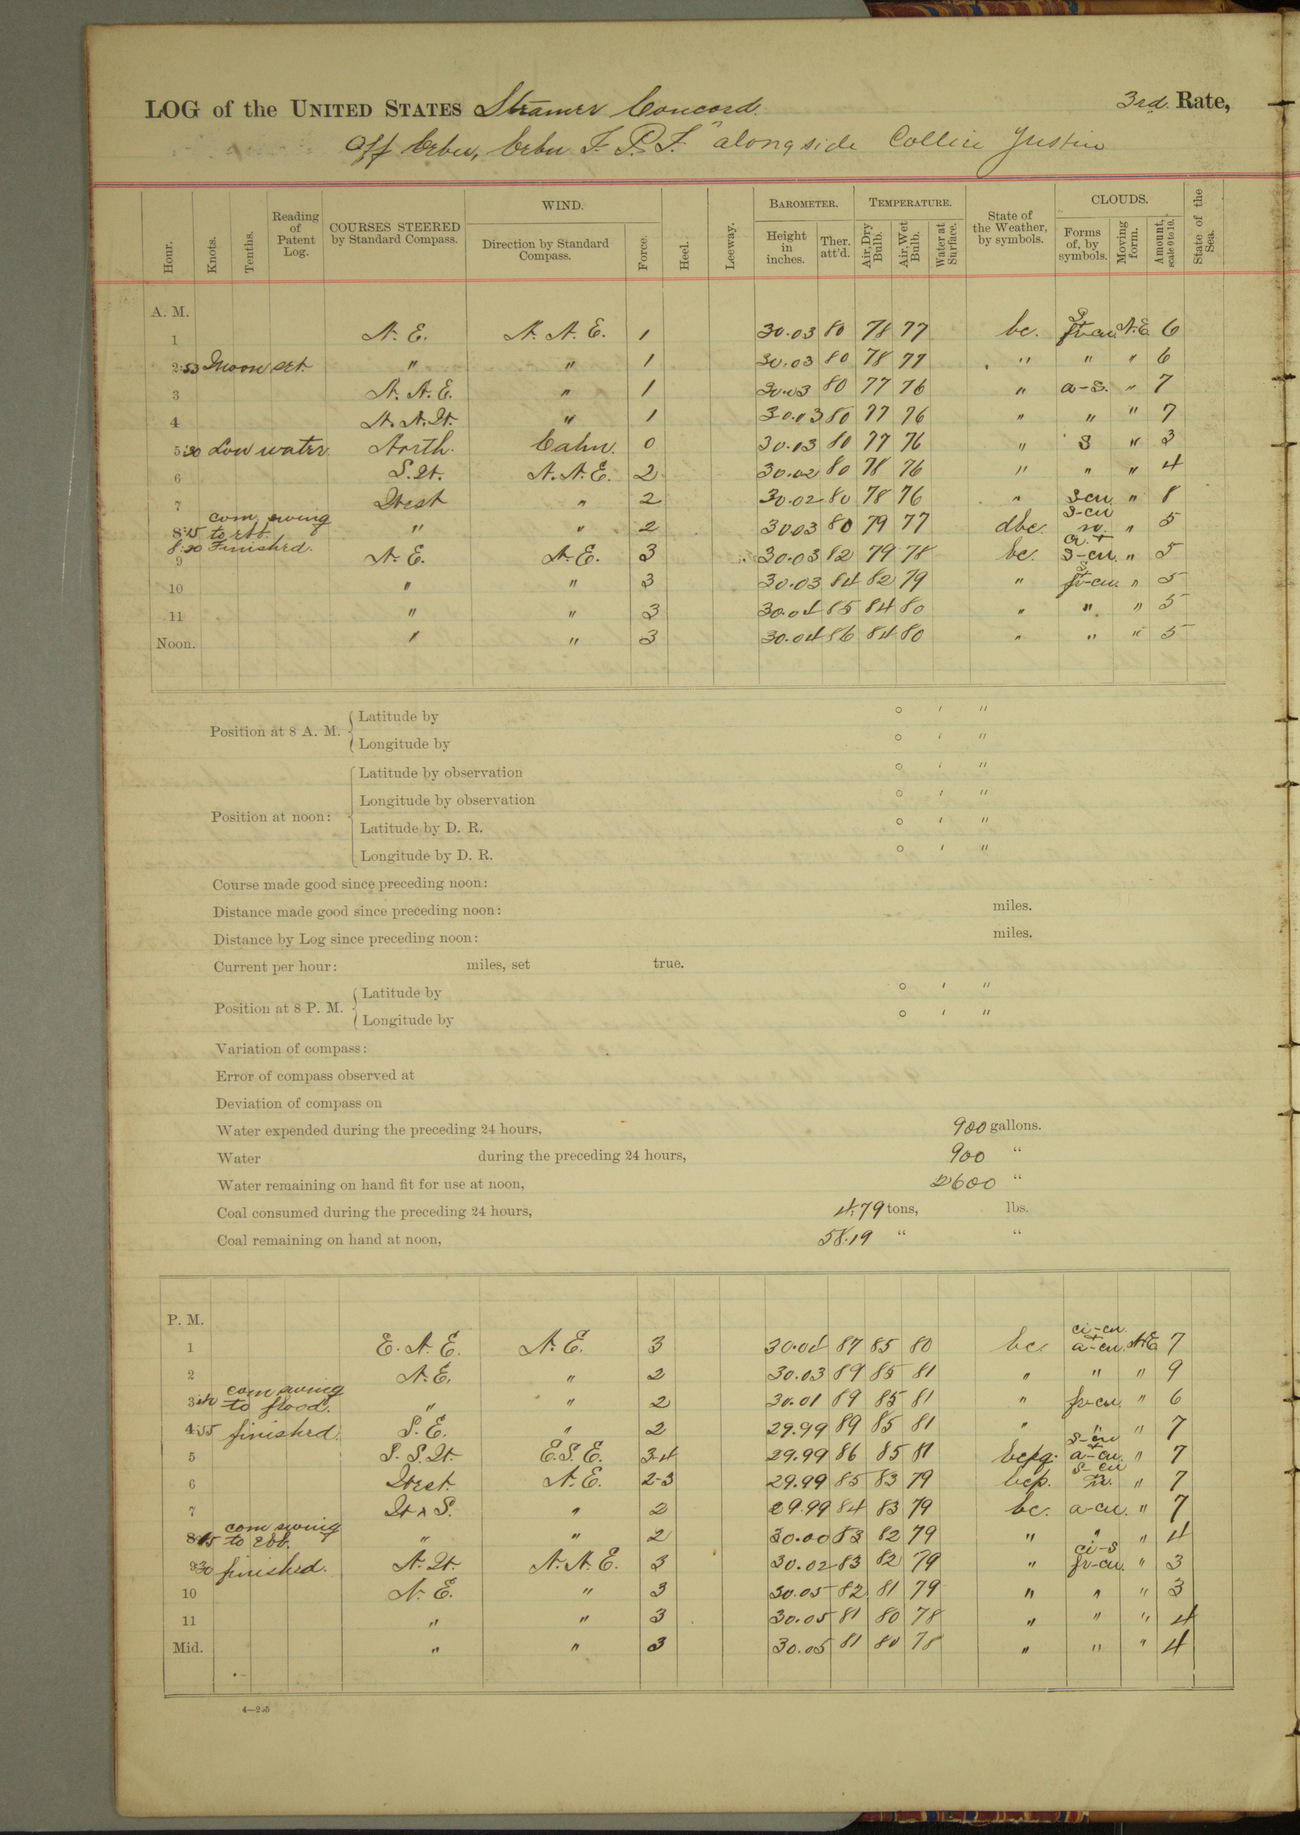 LOG of the UNITED STATES Steamer Concord. 3rd. Rate,
Off Cebu, Cebu I. P.I. " alongside Collier Justin
Hour. Knots. Tenths. Reading of Patent Log. COURSES STEERED by Standard Compass. WIND. Direction by Standard Compass. Force. Heel. Leeway. BAROMETER. Height in inches. Ther. att'd. TEMPERATURE. Air, Dry Bulb. Air, Wet Bulb. Water at Surface. State of the Weather, by symbols. CLOUDS. Forms of, by symbols. Moving form. Amount, scale 0 to 10. State of the Sea.
A. M.
1 N. E. N. N. E. 1 30.03 80 78 77 bc. S + fr-cu. N.E 6
2:53 Moon set " " 1 30.03 80 78 77 " " " 6
3 N. N. E. " 1 30.03 80 77 76 " a-s. " 7
4 N. N. W. " 1 30.03 80 77 76 " " " 7
5:30 Low water North. Calm. 0 30.03 80 77 76 " S " 3
6 S. W. N. N. E. 2 30.02 80 78 76 " " " 4
7 West " 2 30.02 80 78 76 " S-cu " 8
8:15 com swing to ebb. " " 2 30.03 80 79 77 dbc. S-cu n. " 5
8:30 Finished.
9 N. E. N. E. 3 30.03 82 79 78 bc. S-cu. " 5
10 " " 3 30.03 84 82 79 " fr-cu. " 5
11 " " 3 30.04 85 84 80 " " " 5
Noon. " " 3 30.04 86 84 80 " " " 5
Position at 8 A. M. Latitude by ° ′ ″
Longitude by ° ′ ″
Position at noon: Latitude by observation ° ′ ″
Longitude by observation ° ′ ″
Latitude by D. R. ° ′ ″
Longitude by D. R. ° ′ ″
Course made good since preceding noon:
Distance made good since preceding noon: miles.
Distance by Log since preceding noon: miles.
Current per hour: miles, set true.
Position at 8 P. M. Latitude by ° ′ ″
Longitude by ° ′ ″
Variation of compass:
Error of compass observed at
Deviation of compass on
Water expended during the preceding 24 hours, 900 gallons.
Water during the preceding 24 hours, 900 "
Water remaining on hand fit for use at noon, 2600 "
Coal consumed during the preceding 24 hours, 4.79 tons, lbs.
Coal remaining on hand at noon, 58.19 " "
P. M.
1 E. N. E. N. E. 3 30.04 87 85 80 bc. ci-cu. + a-cu. N.E. 7
2 N. E. " 2 30.03 89 85 81 " " " 9
3:40 com swing to flood. " " 2 30.01 89 85 81 " fr-cu. " 6
4:55 finished. S. E. " 2 29.99 89 85 81 " " " 7
5 S. S. W. E. S. E. 3-4 29.99 86 85 81 bcpq. S-cu + a-cu. " 7
6 West. N. E. 2-3 29.99 85 83 79 bcp. S-cu n. " 7
7 W x S. " 2 29.99 84 83 79 bc. a-cu. " 7
8:15 com swing to ebb. " " 2 30.00 83 82 79 " " " 4
9:30 finished. N. W. N. N. E. 3 30.02 83 82 79 " ci-s fr-cu. " 3
10 N. E. " 3 30.05 82 81 79 " " " 3
11 " " 3 30.05 81 80 78 " " " 4
Mid. " " 3 30.05 81 80 78 " " " 4